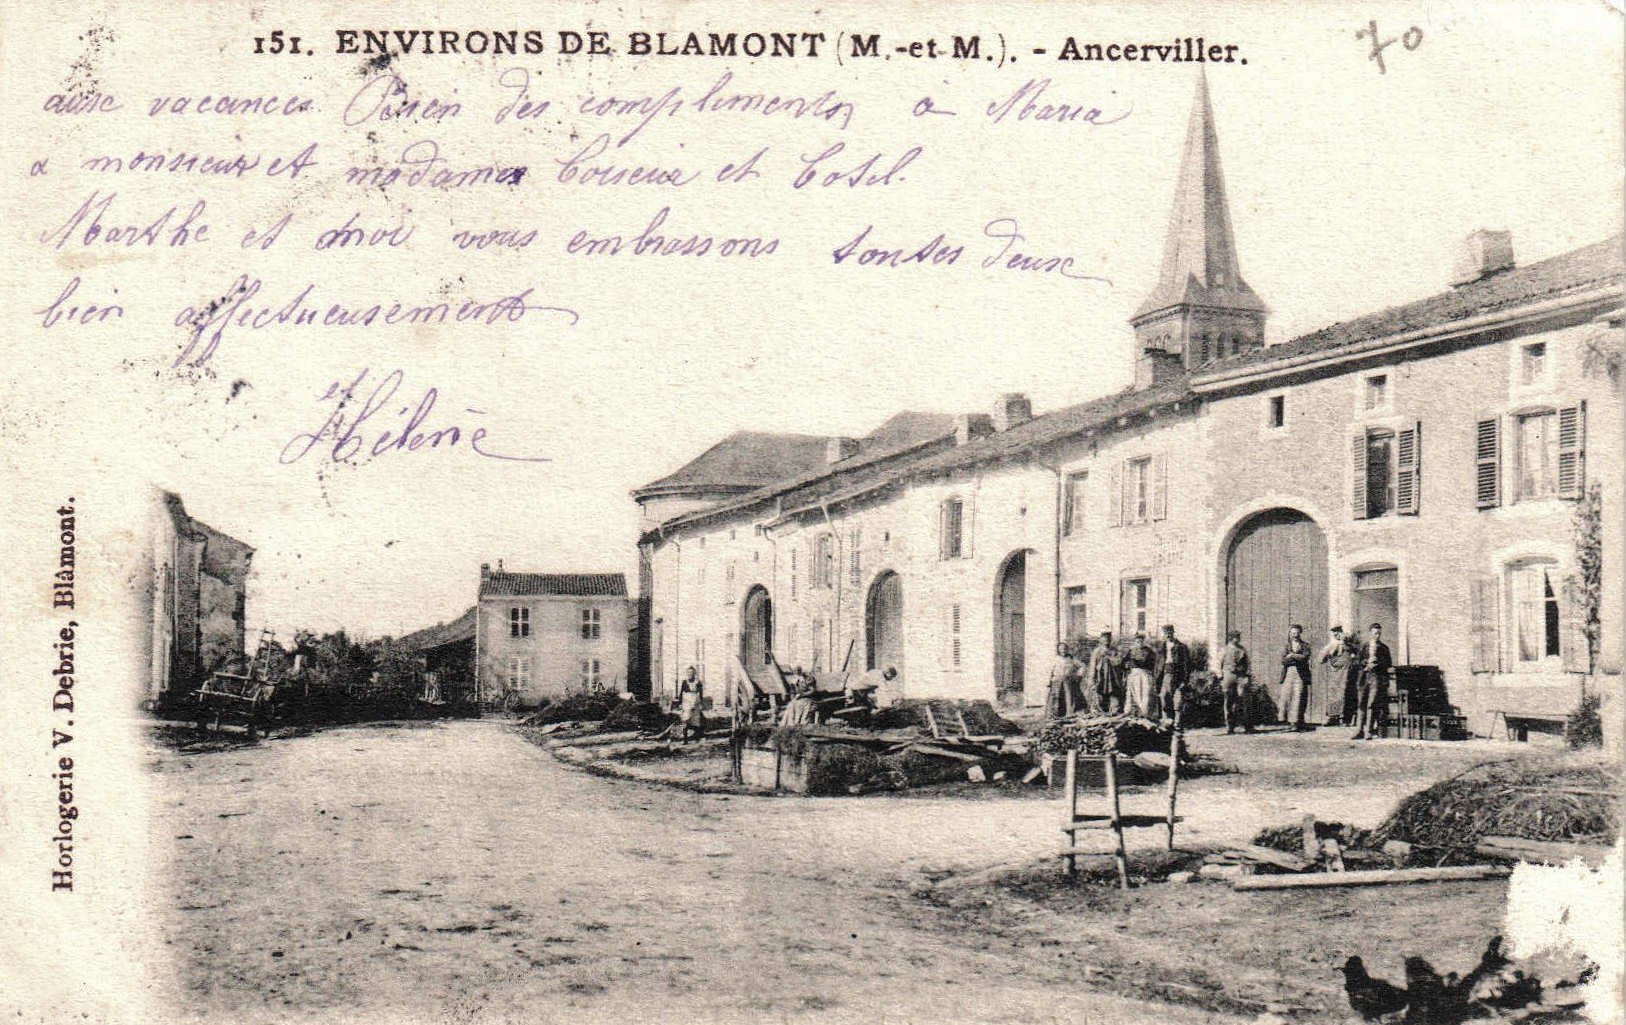 151. ENVIRONS DE BLAMONT (M.-et-M.). - Ancerviller.
70
aux vacances. Bien des compliments à Maria
& monsieur et madame et
Marthe et moi vous embrassons toutes deux
bien affectueusement
Hélène
Horlogerie V. Debrie, Blâmont.